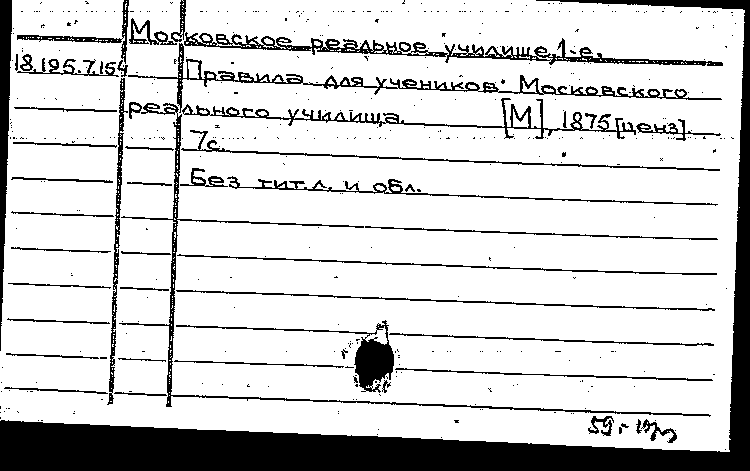 Московское реальное училище, 1-е.
18.195.7.154 Правила для учеников Московского
реального училища. [М.], 1875 [ценз].
7с.
Без тит.л. и обл.
59г.